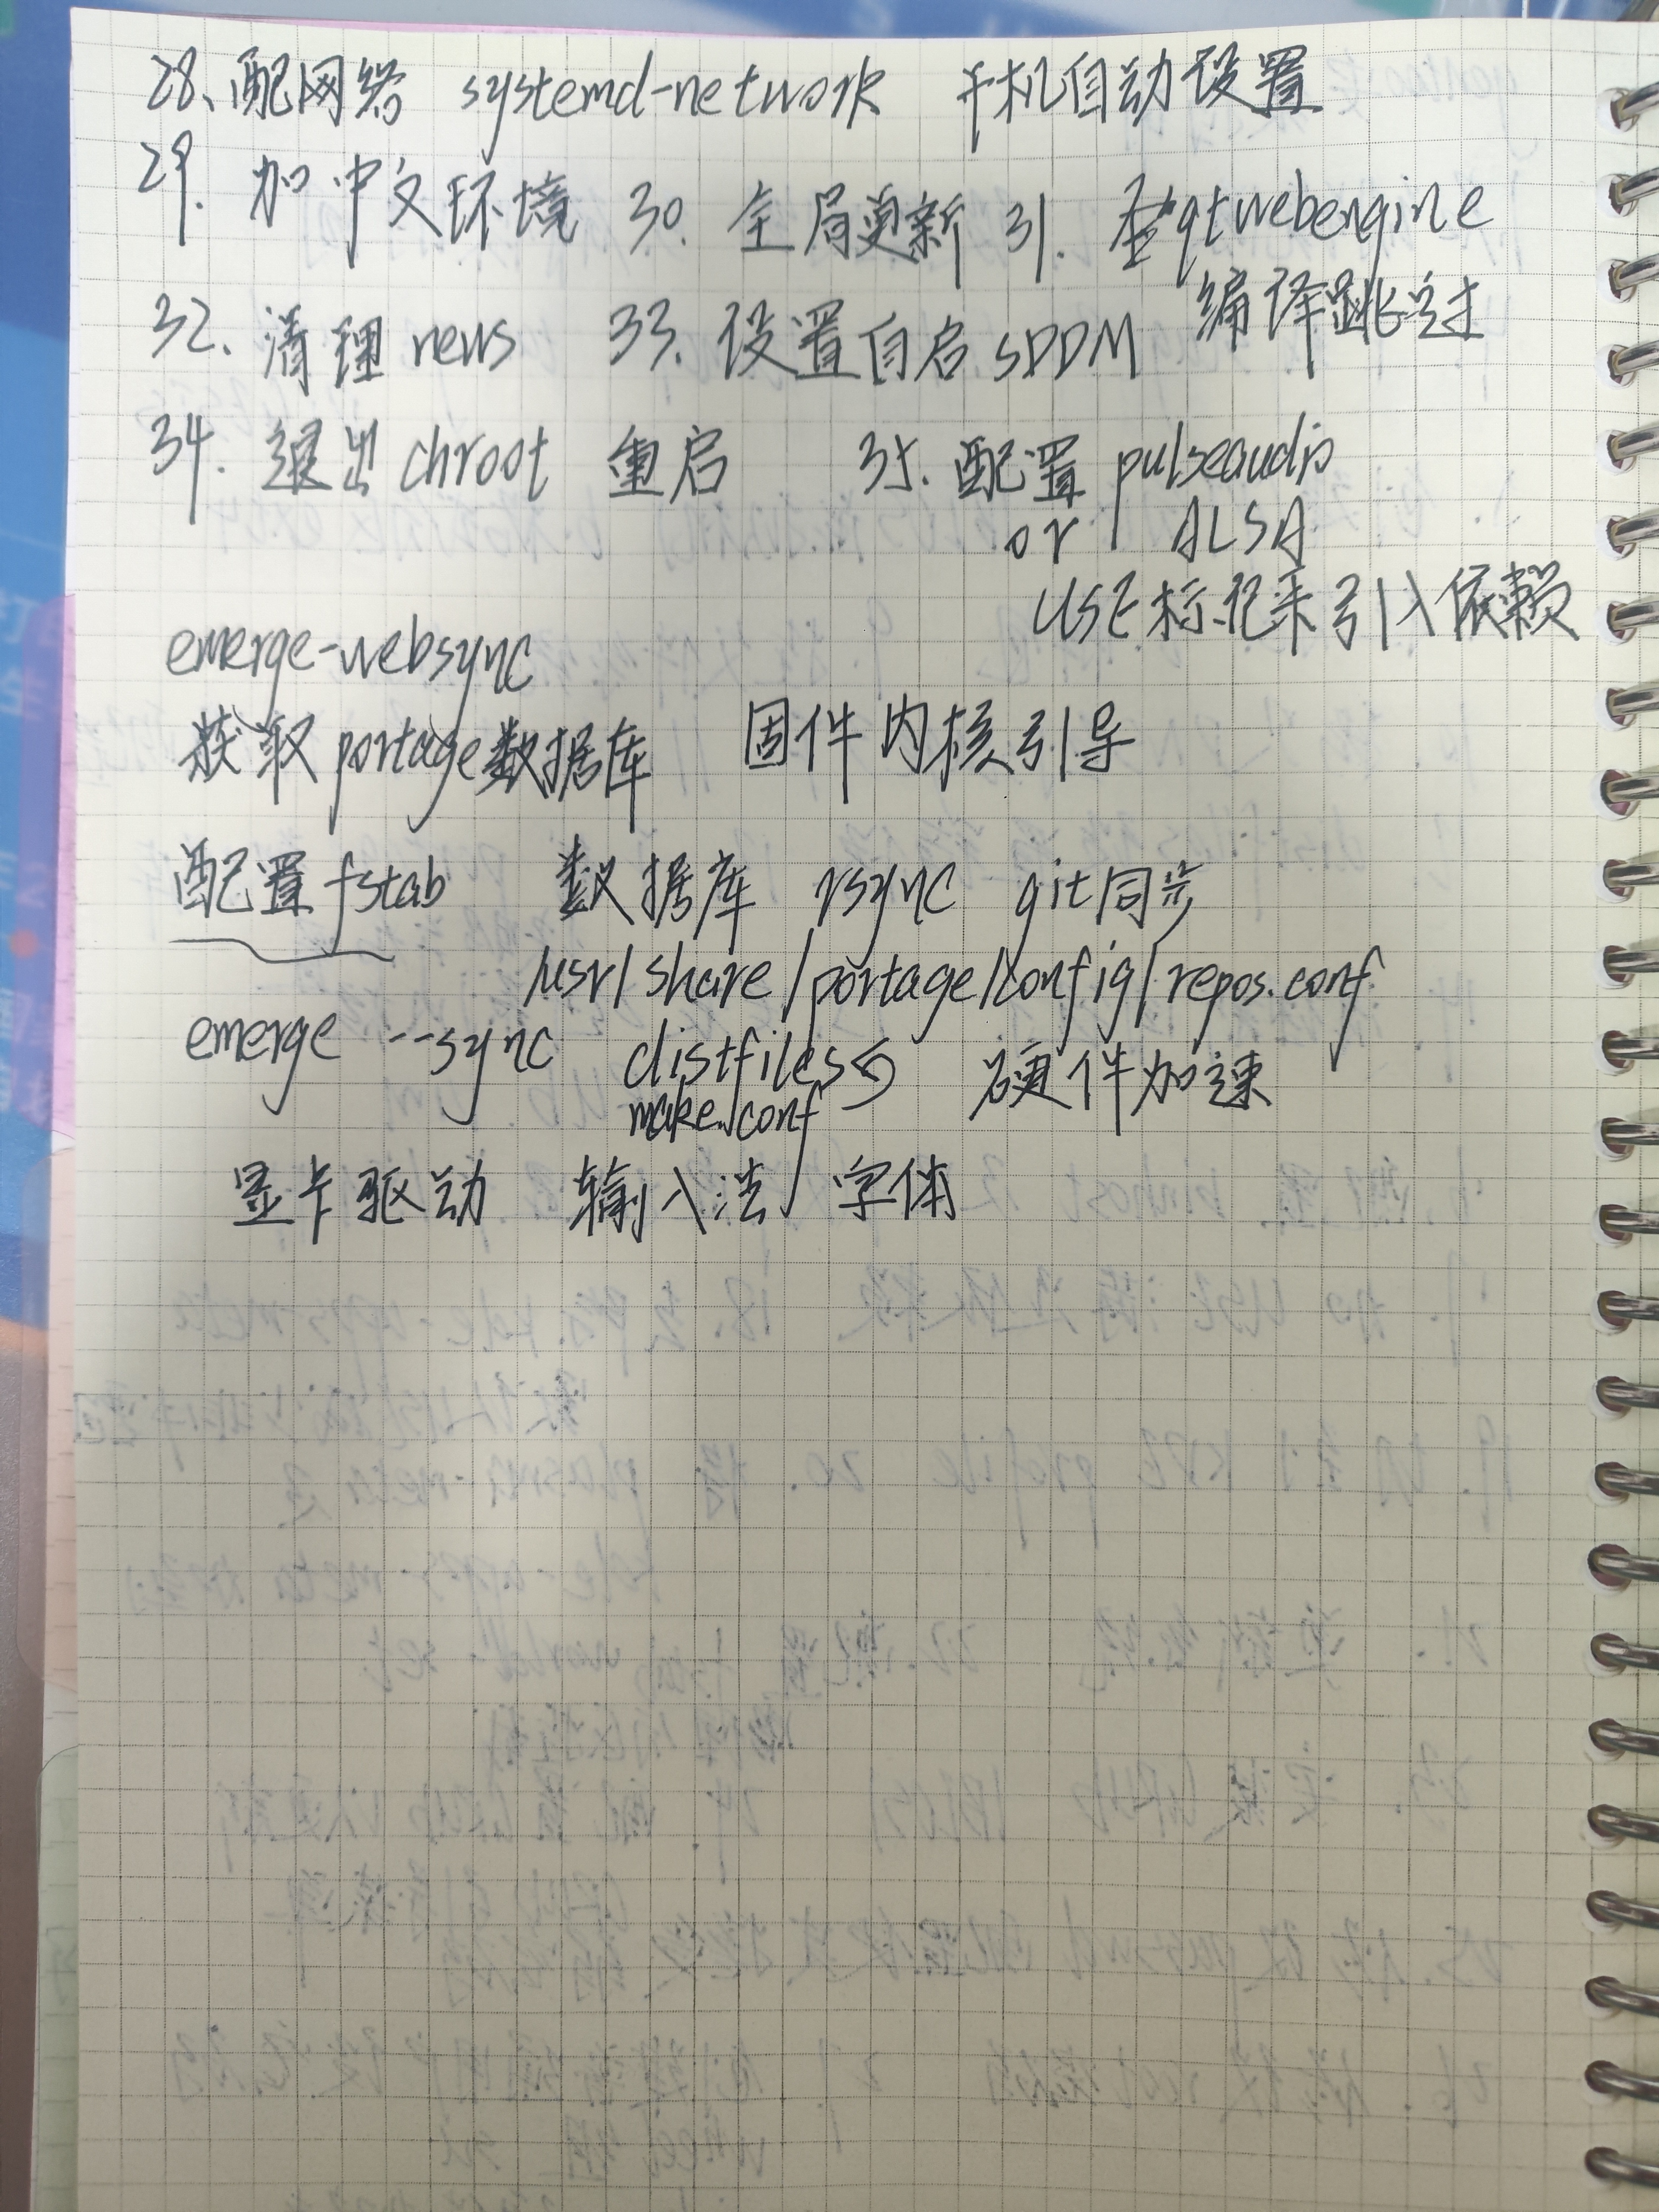 28、配网络 systemd-network 手机自动设置
29. 加中文环境 30. 全局更新 31. qtwebengine
编译跳过
32. 清理news 33. 设置自启SDDM
34. 退出chroot 重启 35. 配置 pulseaudio
or ALSA
USE标记来引入依赖
emerge-websync
获取portage数据库 固件内核引导
配置fstab 数据库 rsync git同步
/usr/share/portage/config/repos.conf
emerge --sync distfiles 硬件加速
make.conf
显卡驱动 输入法 字体